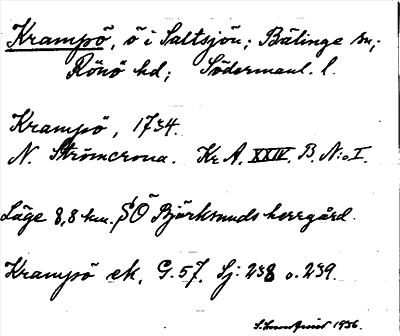 Krampö, ö i Saltsjön; Bälinge sn;
Rönö hd; Södermanl. l.
Krampö, 1734.
N. Strömcrona. Kr A. XXIV. B. N:o I.
Läge 8,8 km. SÖ Björksunds herrgård.
Krampö ek. G. 57. Sj: 238 o. 239.
1936.